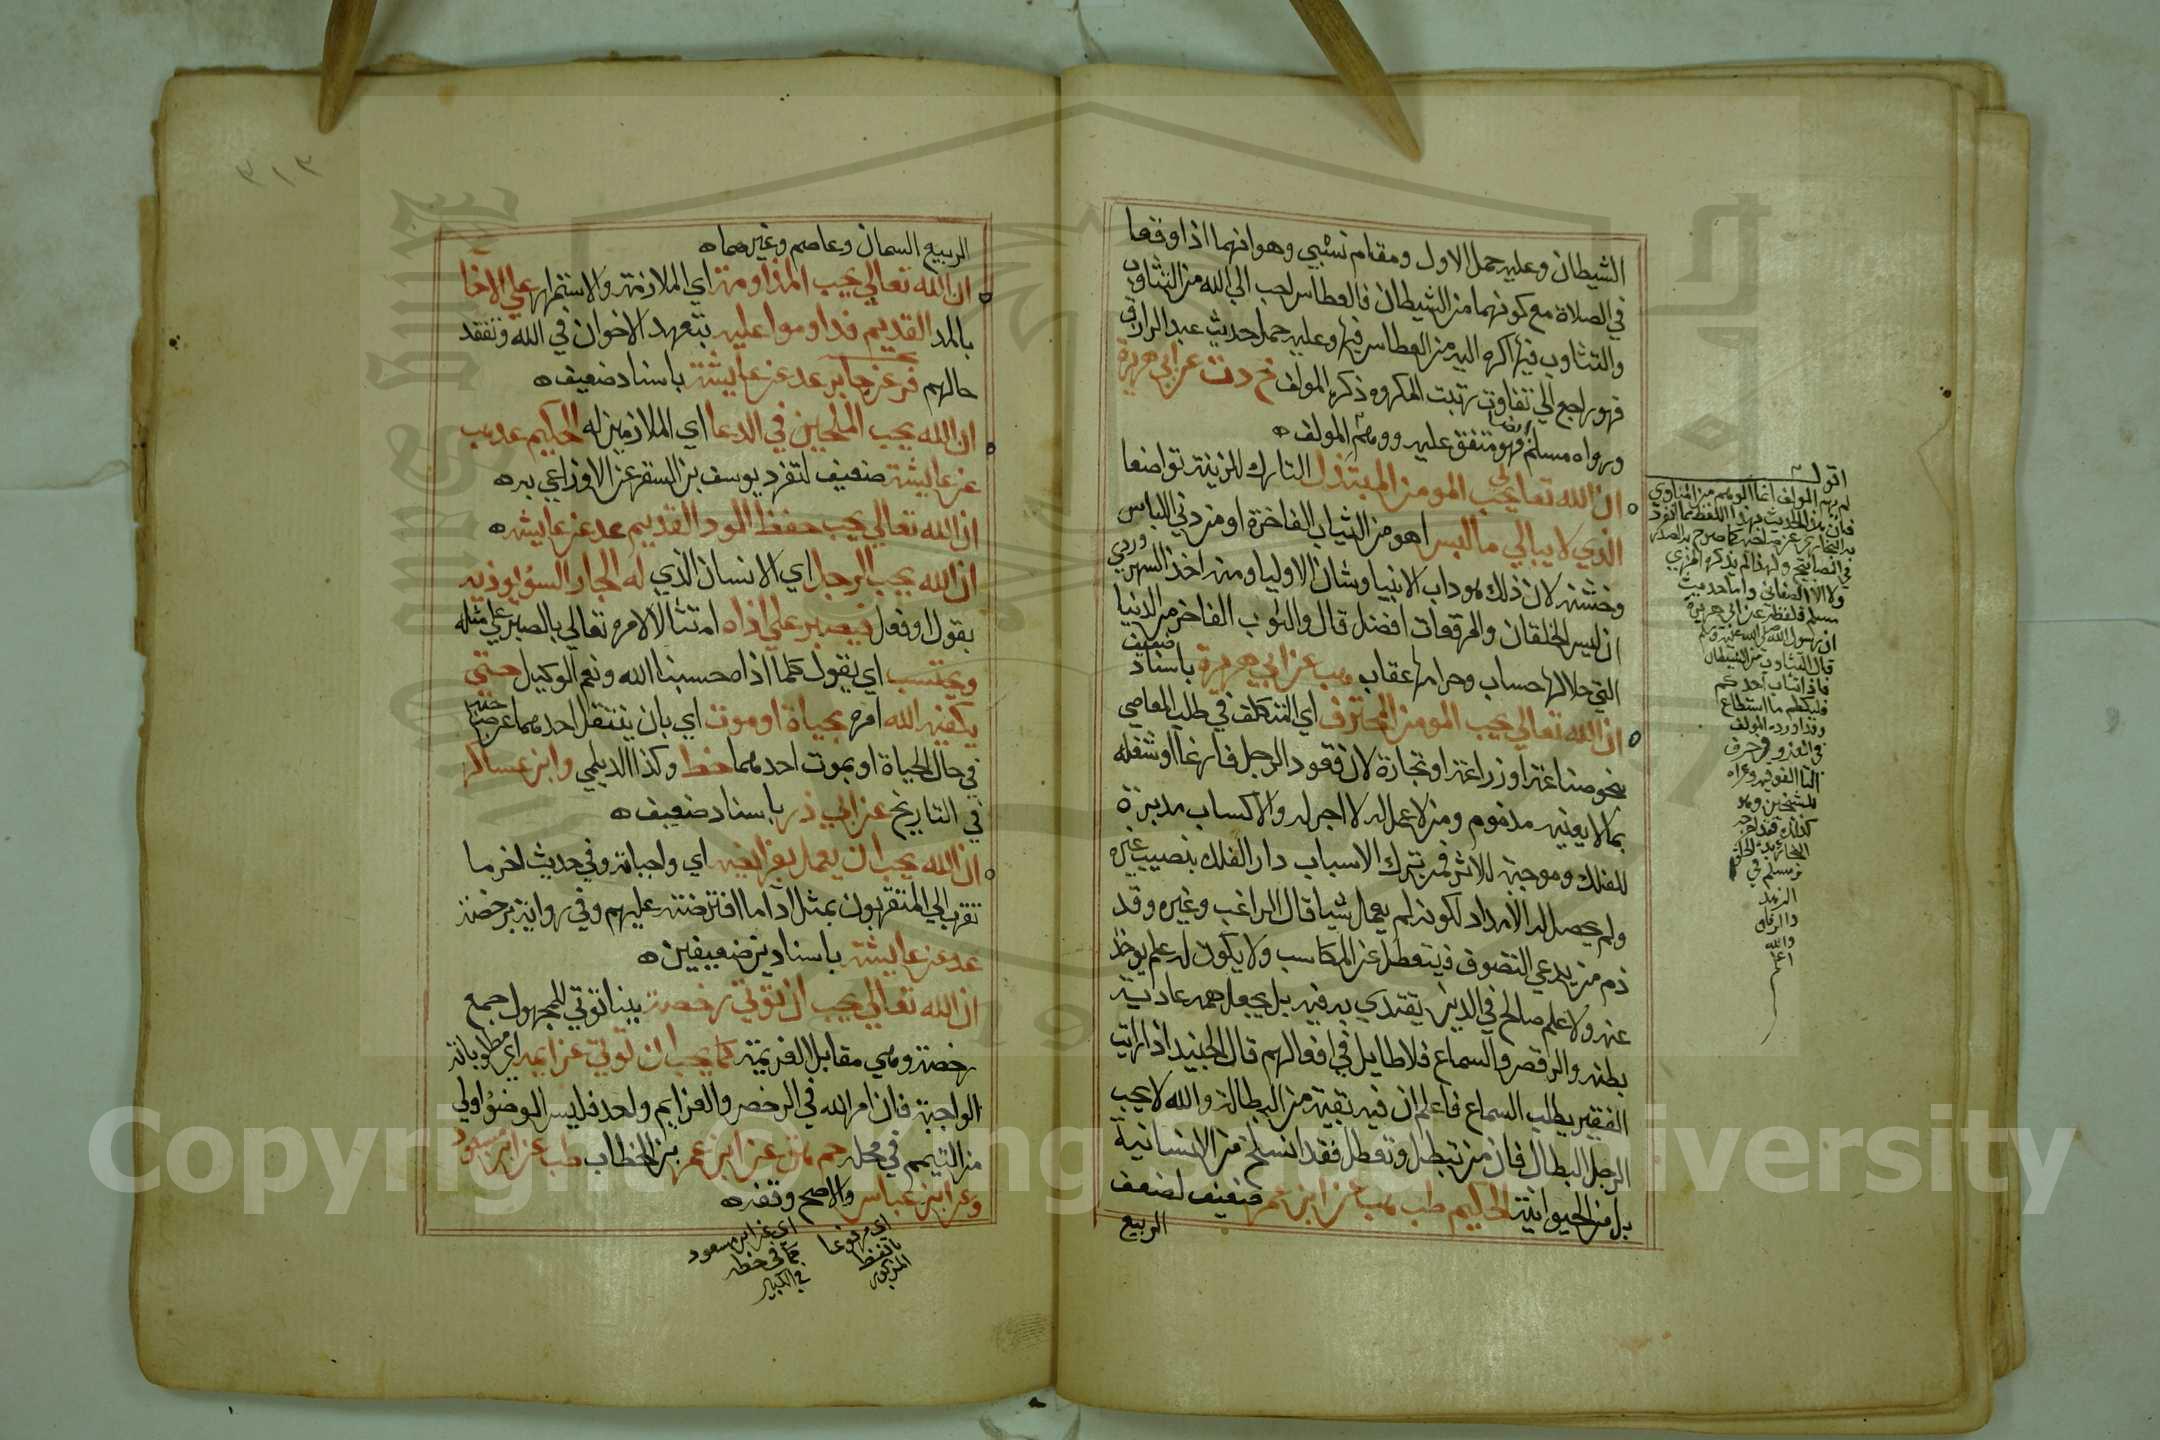 الشيطان وعليه حمل الاول ومقام نسبي وهو انهما اذا وقعا
في الصلاة مع كونهما من الشيطان فالعطاس احب الي الله من التثاوب
والتثاوب فيها اكره اليه من العطاس فيها وعليه حمل حديث عبد الرزاق
فهو راجع الي تفاوت رتبت المكروه ذكره المولف خ د ت عن ابي هريرة
ورواه مسلم ايضا فهو متفق عليه ووهم المولف ه
ان الله تعالي يحب المومن المبتذل التارك للزينة تواضعا
الذي لا يبالي ما لبس اهو من الثياب الفاخرة او من دني اللباس
وخشنه لان ذلك هو داب الانبيا وشان الاوليا ومنه اخذ السهروردي
ان لبس الخلقان والمرقعات افضل قال والثوب الفاخر من الدنيا
التي حلالها حساب وحرامها عقاب هب عن ابي هريرة باسناد ضعيف
ان الله تعالي يحب المومن المحترف اي المتكلف في طلب المعاصي
بنحو صناعة او زراعة او تجارة لان قعود الرجل فارغا او شغله
بما لا يعنيه مذموم ومن لا عمل له لا اجر له والاكساب مديرة
للفلك وموجبة للاثر فمن بترك الاسباب دار الفلك بنصيب غيره
ولم يحصل له الامداد لكونه لم يعمل شيا قال الراغب وغيره وقد
ذم من يدعي التصوف فيتعطل عن المكاسب ولا يكون له علم يوخذ
عنه ولا علم صالح في الدين يقتدي به فيه بل يجعل همه عادية
بطنه والرقص والسماع فلا طايل في افعالهم قال الجنيد اذا رايت
الفقير يطلب السماع فاعلم ان فيه بقية من البطالة والله لا يحب
الرجل البطال فان من تبطل وتعطل فقد انسلخ من الانسانية
بل من الحيوانية الحكيم طب هب عن ابن عمر ضعيف لضعف
الربيع
اقول
لم يهم المولف انما الوهم من المناوي
فان هذا الحديث بهذا اللفظ مما انفرد
به البخاري عن مسلم كما صرح به الصدر
في المصابيح ولهذا لم يذكره المنذري
ولا الصغاني واما حديث
مسلم فلفظه عن ابي هريرة
ان رسول الله صلي الله عليه وسلم
قال التثاوب من الشيطان
فاذا تثاب احدكم
فليكظم ما استطاع
وقد اورده المولف
في حرف
التا الفوقيه وعزاه
للشيخين وهو
كذلك فقد اخرجه
البخاري في بدء الخلق
ومسلم في
الزهد
والرقاق
والله
اعلم
٣١٣
الربيع السمان وعاصم وغيرهما ه
ان الله تعالي يحب المداومة اي الملازمة والاستمرار علي الاخا
بالمد القديم فداوموا عليه بتعهد الاخوان في الله وتفقد
حالهم فر عن جابر عد عن عايشة باسناد ضعيف ه
ان الله يحب الملحين في الدعا اي الملازمين له الحكيم عد هب
عن عايشة ضعيف لتفرد يوسف بن السفر عن الاوزاعي به ه
ان الله تعالي يحب حفظ الود القديم عد عن عايشه ه
ان الله يحب الرجل اي الانسان الذي له الجار السوء يوذيه
بقول او فعل فيصبر علي اذاه امتثالا لامره تعالي بالصبر علي مثله
ويحتسب اي يقول كلما اذاه حسبنا الله ونعم الوكيل حتي
يكفيه الله امره بحياة او موت اي بان ينتقل احدهما عن صاحبه
في حال الحياة او بموت احدهما خط وكذا الديلمي وابن عساكر
في التاريخ عن ابي ذر باسناد ضعيف ه
ان الله يحب ان يعمل بفرايضه اي واجباته وفي حديث اخر ما
تقرب الي المتقربون بمثل ادا ما افترضته عليهم وفي رواية برخصه
عد عن عايشة باسنادين ضعيفين ه
ان الله تعالي يحب ان توتي رخصه ببنا توتي للمجهول جمع
رخصة وهي مقابل العزيمة كما يحب ان توتي عزايمه اي مطلوباته
الواجبة فان امر الله في الرخص والعزايم واحد فليس الوضوء اولي
من التيمم في محله حم هق عن ابن عمر بن الخطاب طب عن ابن مسعود
وعن ابن عباس والاصح وقفه ه
اي مرفوعا
باللفظ
المزبور
اي عن ابن مسعود
كما في خطه
في الكبير
Copyright © King Saud University